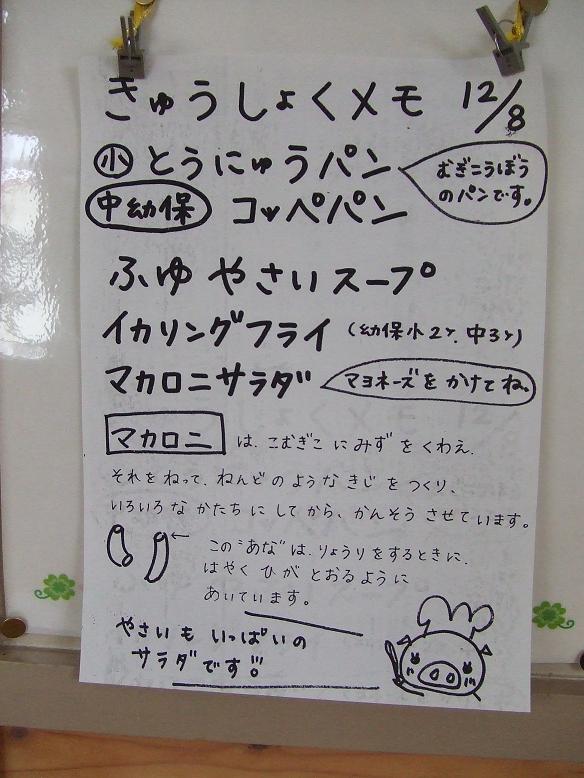 きゅうしょくメモ 12/8
小 とうにゅうパン
むぎこうぼう
のパンです。
中幼保 コッペパン
ふゆやさいスープ
イカリングフライ (幼保小2ケ. 中3ケ)
マカロニサラダ マヨネーズをかけてね。
マカロニ は、こむぎこにみずをくわえ、
それをねって、ねんどのようなきじをつくり、
いろいろなかたちにしてから、かんそうさせています。
この"あな"は、りょうりをするときに、
はやくひがとおるように
あいています。
やさいもいっぱいの
サラダです!!